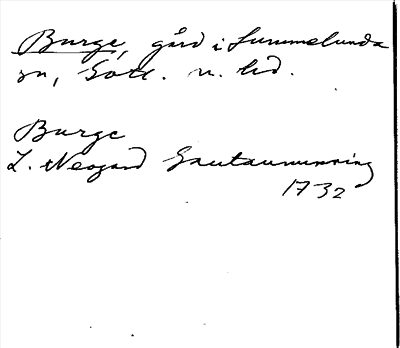 Burge, gård i Lummelunda
sn, Gotl. n. hd.
Burge
L. Neogard Gautauminning
1732